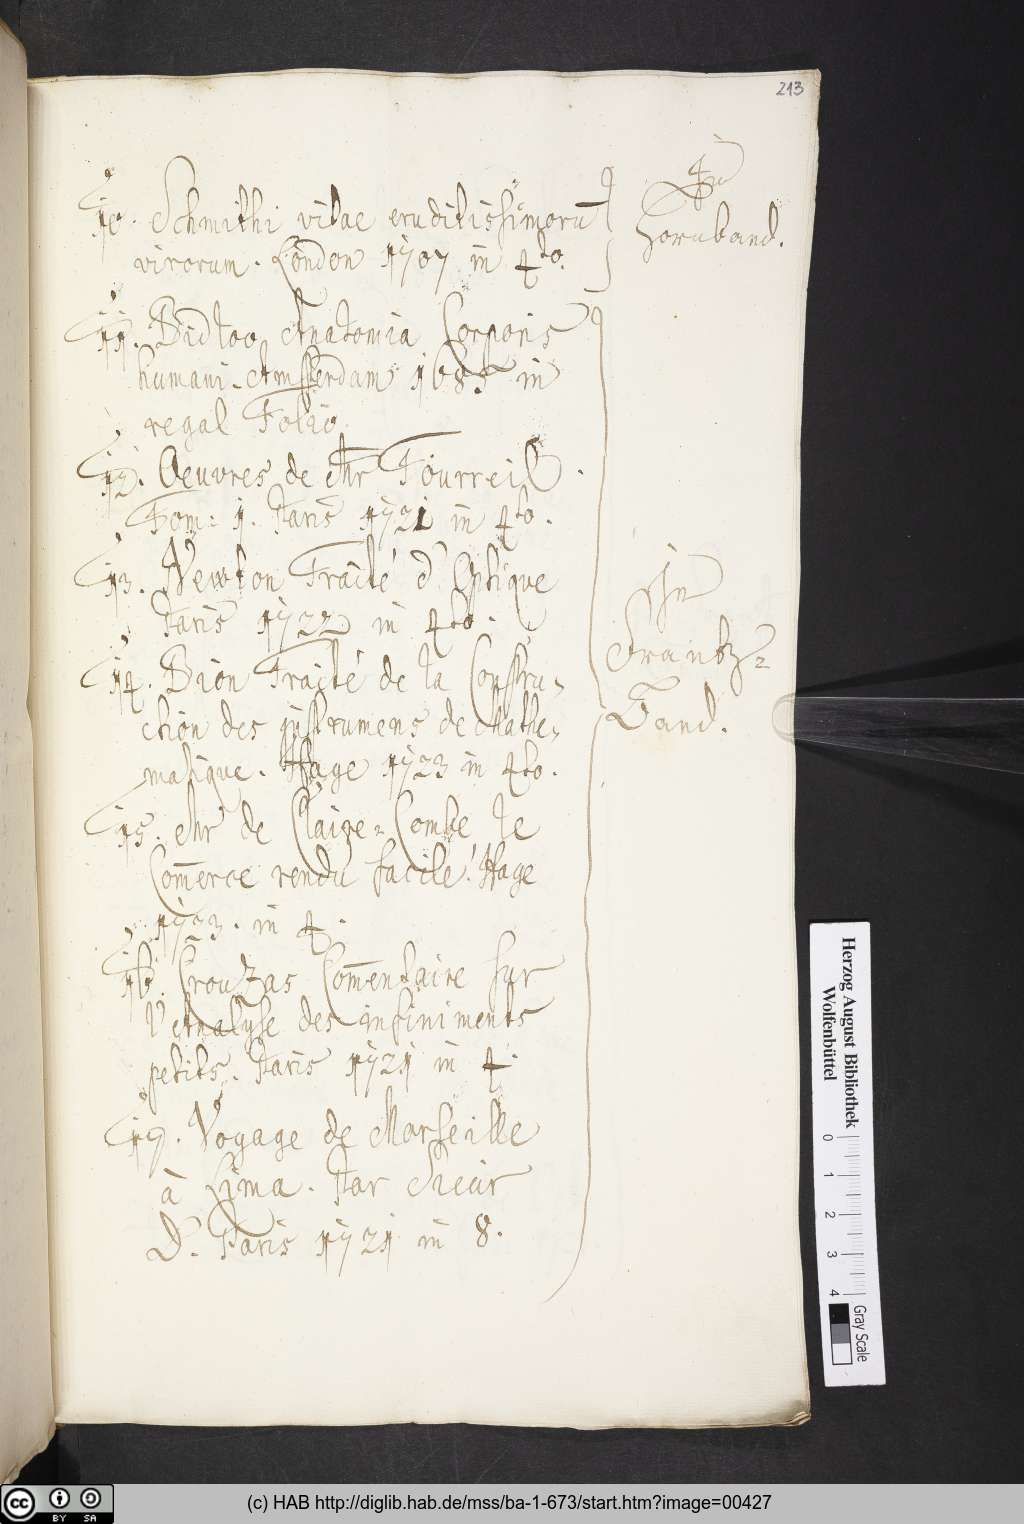 213
10. Schmithi vitae eruditissimorū
virorum. London 1707 in 4to.
In
Hornband.
11. Bidloo Anatomia Corporis
humani. Amsterdam 1685 in
regal Folio
12. Oeuvres de Mr Tourreil.
Tom: 1. Paris 1721 in 4to.
13. Newton Traité d'Optique
Paris 1722 in 4to.
14. Bion Traité de la Constru-
ction des instrumens de Mathe-
matique. Hage 1723 in 4to.
15. Mr de Claire-Combe le
Com̄erce rendu facile. Hage
1723. in 4.
16. Crouzas Com̄entaire sur
l'Analyse des infiniments
petits. Paris 1721 in 4.
17. Voyage de Marseille
à Lima. Par Sieur
D. Paris 1721 in 8.
In
Frantz-
Band.
Herzog August Bibliothek
Wolfenbüttel
0 1 2 3 4
Gray Scale
cc BY SA
(c) HAB http://diglib.hab.de/mss/ba-1-673/start.htm?image=00427